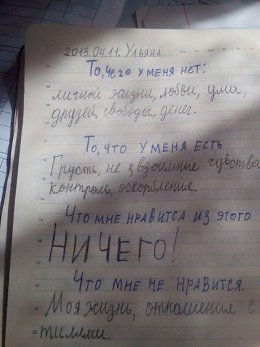 2013.04.11. Ульяна
То, чего у меня нет:
личной жизни, любви, ума,
друзей, свободы, денег.
То, что у меня есть
Грусть, не взаимные чувства
контроль, оскорбления.
Что мне нравится из этого
НИЧЕГО!
Что мне не нравится.
Моя жизнь, отношения с